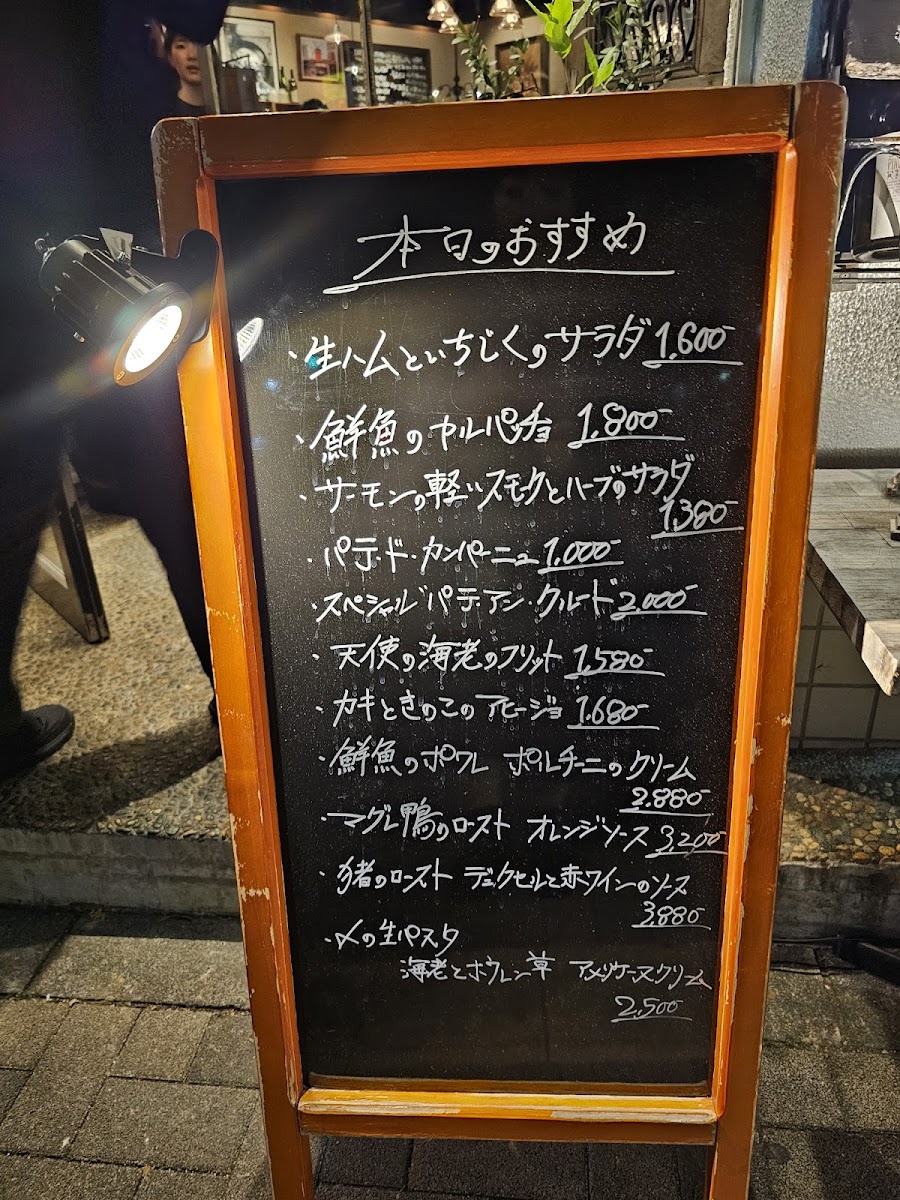 本日のおすすめ
・生ハムといちじくのサラダ 1,600-
・鮮魚のカルパッチョ 1,800-
・サーモンの軽いスモークとハーブのサラダ
1,380-
・パテ・ド・カンパーニュ 1,000-
・スペシャルパテ・アン・クルート 2,000-
・天使の海老のフリット 1,580-
・カキときのこのアヒージョ 1,680-
・鮮魚のポワレ ポルチーニのクリーム
2,880-
・マグレ鴨のロースト オレンジソース 3,200-
・猪のロースト デュクセルと赤ワインのソース
3,880-
・〆の生パスタ
海老とホウレン草 アメリケーヌクリーム
2,500-